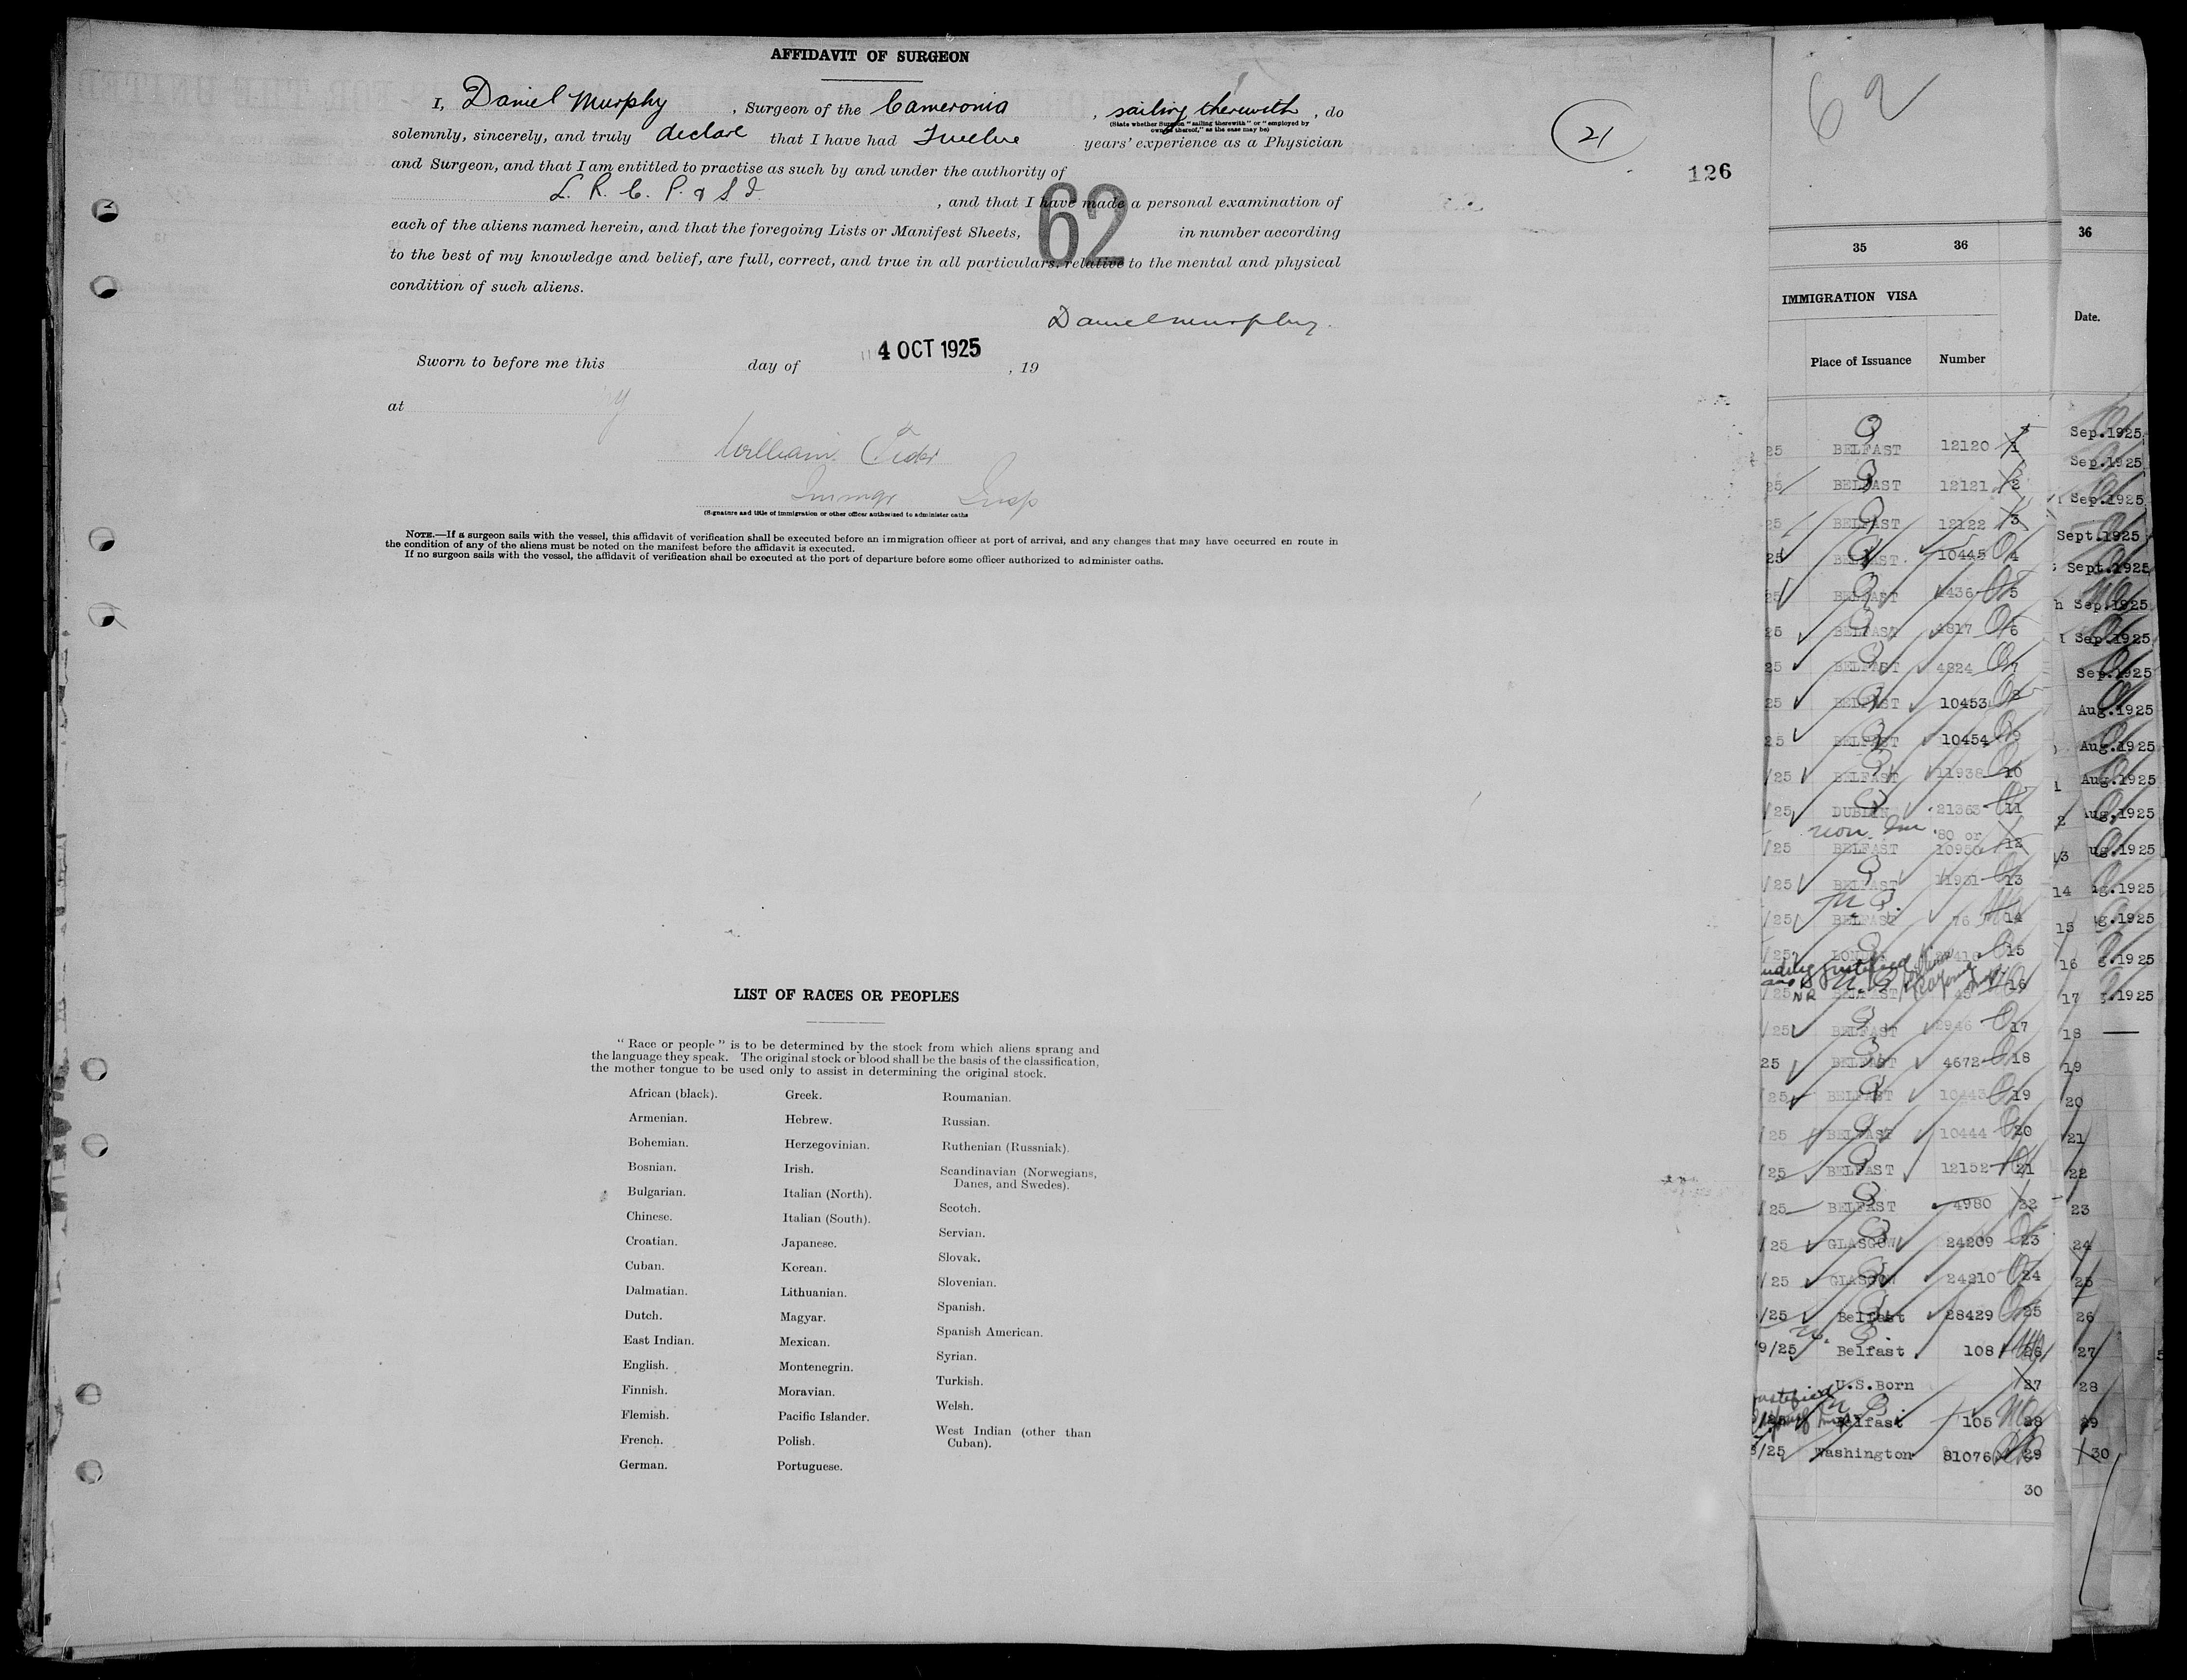 AFFIDAVIT OF SURGEON
I, Daniel Murphy, Surgeon of the Cameronia, sailing therewith, do
(State whether Surgeon "sailing therewith" or "employed by
owners thereof," as the case may be)
solemnly, sincerely, and truly declare that I have had Twelve years' experience as a Physician
and Surgeon, and that I am entitled to practise as such by and under the authority of
L. R. C. P. & S. I., and that I have made a personal examination of
each of the aliens named herein, and that the foregoing Lists or Manifest Sheets, 62 in number according
to the best of my knowledge and belief, are full, correct, and true in all particulars relative to the mental and physical
condition of such aliens.
Daniel Murphy.
Sworn to before me this day of 4 OCT 1925, 19
at
William
Immgr Insp
(Signature and title of immigration or other officer authorized to administer oaths
NOTE.—If a surgeon sails with the vessel, this affidavit of verification shall be executed before an immigration officer at port of arrival, and any changes that may have occurred en route in
the condition of any of the aliens must be noted on the manifest before the affidavit is executed.
If no surgeon sails with the vessel, the affidavit of verification shall be executed at the port of departure before some officer authorized to administer oaths.
21
126
LIST OF RACES OR PEOPLES
"Race or people" is to be determined by the stock from which aliens sprang and
the language they speak. The original stock or blood shall be the basis of the classification,
the mother tongue to be used only to assist in determining the original stock.
African (black).
Armenian.
Bohemian.
Bosnian.
Bulgarian.
Chinese.
Croatian.
Cuban.
Dalmatian.
Dutch.
East Indian.
English.
Finnish.
Flemish.
French.
German.
Greek.
Hebrew.
Herzegovinian.
Irish.
Italian (North).
Italian (South).
Japanese.
Korean.
Lithuanian.
Magyar.
Mexican.
Montenegrin.
Moravian.
Pacific Islander.
Polish.
Portuguese.
Roumanian.
Russian.
Ruthenian (Russniak).
Scandinavian (Norwegians,
Danes, and Swedes).
Scotch.
Servian.
Slovak.
Slovenian.
Spanish.
Spanish American.
Syrian.
Turkish.
Welsh.
West Indian (other than
Cuban).
62
35 36
IMMIGRATION VISA
Place of Issuance Number
25 BELFAST 12120 1
25 BELFAST 12121 2
25 BELFAST 12122 3
25 BELFAST 10445 4
25 BELFAST 4436 5
25 BELFAST 4817 6
25 BELFAST 4824 7
25 BELFAST 10453 8
25 BELFAST 10454 9
/25 BELFAST 11938 10
/25 DUBLIN 21363 11
non Im 80 or
/25 BELFAST 10950 12
/25 BELFAST 11931 13
/25 BELFAST 76 14
/25 LONDON 15
/25 NR BELFAST 45 16
/25 BELFAST 2946 17
25 BELFAST 4672 18
/25 BELFAST 10443 19
/25 BELFAST 10444 20
/25 BELFAST 12152 21
/25 BELFAST 4980 22
/25 GLASGOW 24209 23
/25 GLASGOW 24210 24
/25 Belfast 28429 25
9/25 Belfast 108 26
U.S.Born 27
/25 Belfast 105 28
/25 Washington 81076 29
30
36
Date.
Sep.1925
Sep.1925
Sep.1925
Sept.1925
Sept.1925
Sep.1925
Sep.1925
Sep.1925
Aug.1925
Aug.1925
Aug.1925
2 ug.1925
13 ug.1925
14 g.1925
15 g.1925
16 g.1925
17 .1925
18
19
20
21
22
23
24
25
26
27
28
29
30